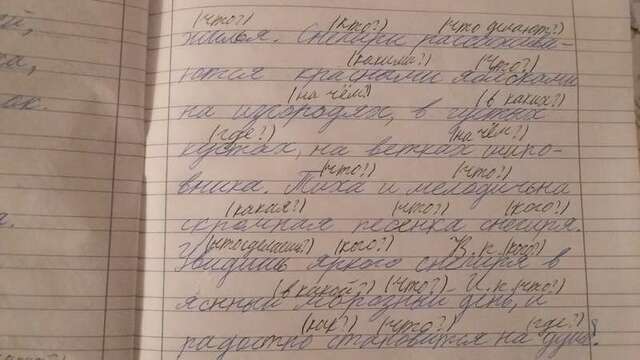 (что?) (кто?) (что делают?)
жилья. Снегири рассажива-
(какими?) (что?)
ются красными яблоками
(на чём?) (в каких?)
на изгородях, в густых
(где?) (на чём?)
кустах, на ветках шипо-
(что?) (что?)
вника. Тиха и мелодична
(какая?) (что?) (кого?)
скромная песенка снегиря.
(что делаешь?) (кого?) В.п. (кого?)
Увидишь яркого снегиря в
(в какой?) (что?) - И.п. (что?)
ясный морозный день, и
(как?) (что?) (где?)
радостно становится на душе.
ок.